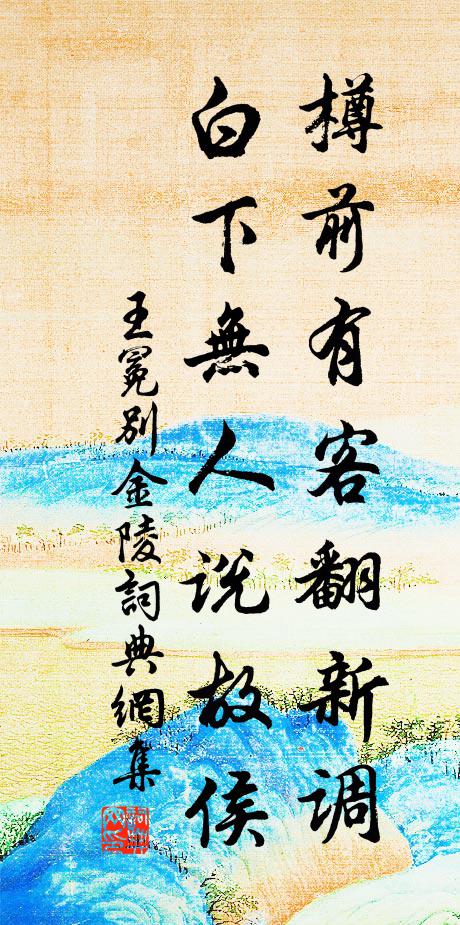 樽前有客翻新调
白下無人说故侯
王冕別金陵詞典網集